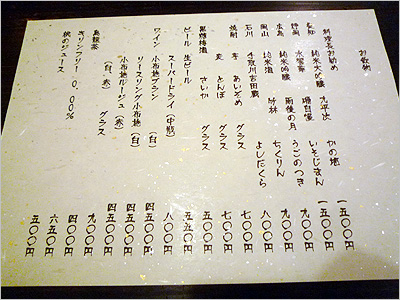 お飲物
料理長お勧め
愛知 純米大吟醸 九平次 かの地 一五〇〇円
静岡 水響華 磯自慢 いそじまん 一五〇〇円
広島 純米吟醸 雨後の月 うごのつき 九〇〇円
岡山 純米酒 竹林 ちくりん 九〇〇円
石川 手取川吉田蔵 よしだくら 八〇〇円
焼酎 芋 あいぞめ グラス 七〇〇円
麦 とんぼ グラス 七〇〇円
黒糖梅酒 さいか グラス 五〇〇円
ビール 生ビール
スーパードライ（中瓶） 五五〇円
八〇〇円
ワイン 小布施ブラン （白） 四五〇〇円
リースリング小布施 （白） 四五〇〇円
小布施ルージュ （赤） 四五〇〇円
（白、赤） グラス 九〇〇円
烏龍茶 四〇〇円
キリンフリー 0．00％ 六五〇円
桃のジュース 五〇〇円